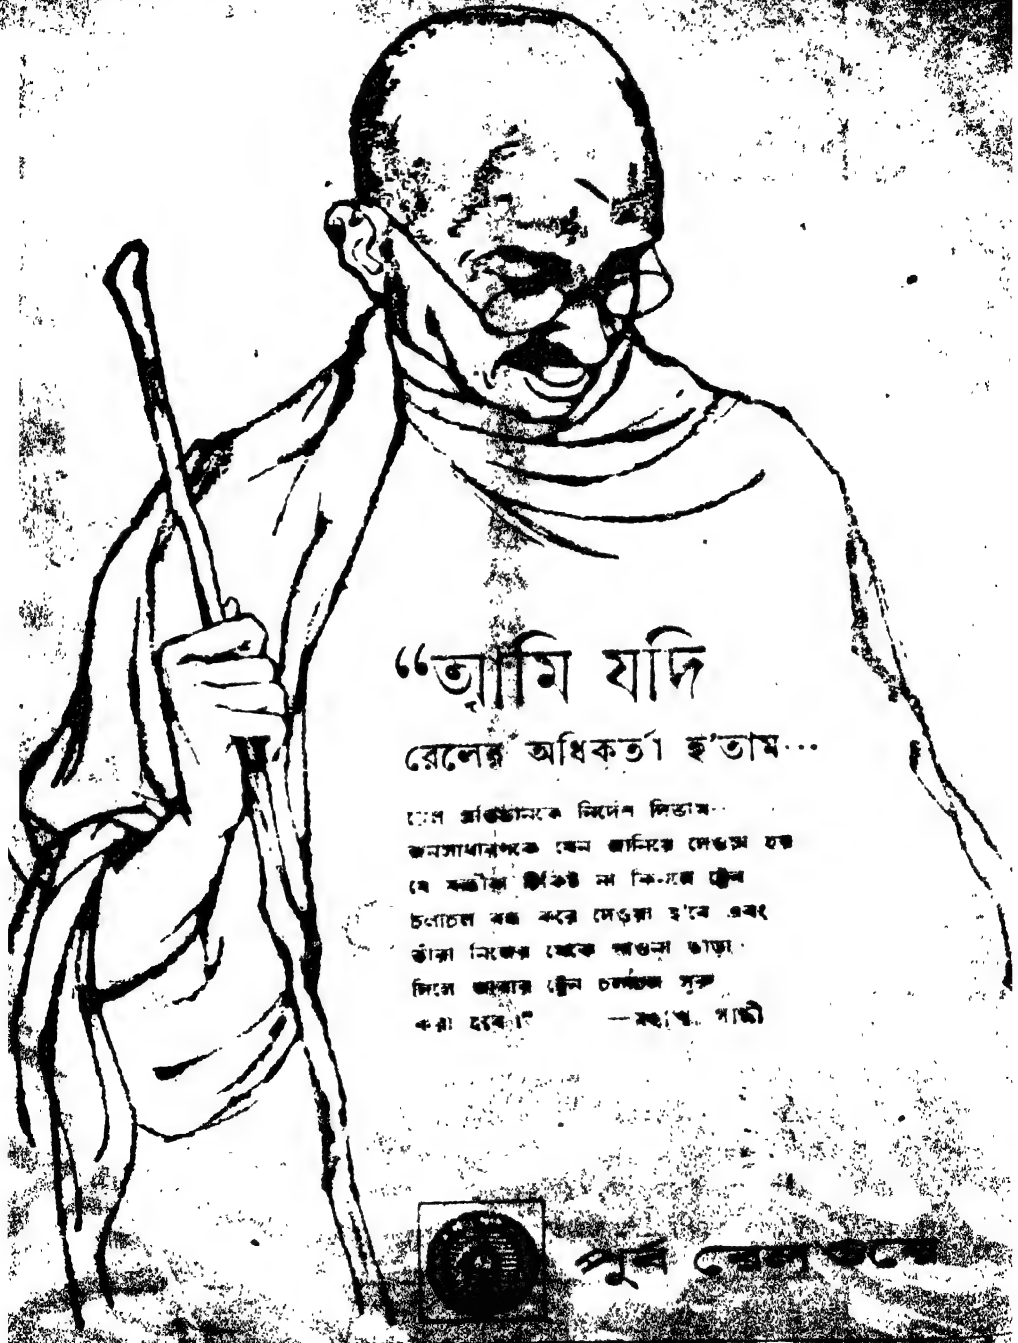 “আমি যদি
রেলের অধিকর্তা হ'তাম...
রেল প্রতিষ্ঠানকে নির্দেশ দিতাম
জনসাধারণকে যেন জানিয়ে দেওয়া হয়
যে যাত্রীরা টিকিট না কিনলে ট্রেন
চলাচল বন্ধ করে দেওয়া হ'বে এবং
তাঁরা নিজের থেকে পাওনা ভাড়া
দিলে আবার ট্রেন চলাচল সুরু
করা হবে।” —মহাত্মা গান্ধী
পূর্ব রেলওয়ে